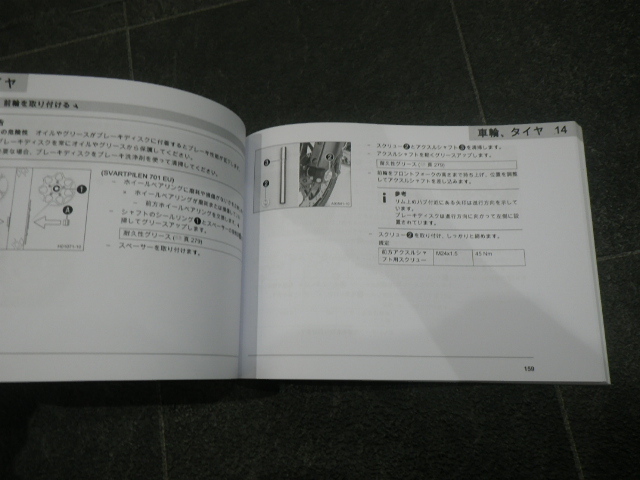 イヤ
前輪を取り付ける
の危険性 オイルやグリースがブレーキディスクに付着するとブレーキ性能が
ブレーキディスクを常にオイルやグリースから保護してください。
要な場合、ブレーキディスクをブレーキ洗浄剤を使って清掃してください。
(SVARTPILEN 701 EU)
– ホイールベアリングに損耗や
» ホイールベアリングが
– 前方ホイールベアリングを交換します。
– シャフトのシールリング❶とスペーサーの
掃してグリースアップします。
耐久性グリース (頁 279)
– スペーサーを取り付けます。
1
A
H01071-10
車輪、タイヤ 14
– スクリュー❷とアクスルシャフト❸を清掃します。
– アクスルシャフトを軽くグリースアップします。
耐久性グリース (頁 279)
– 前輪をフロントフォークの高さまで持ち上げ、位置を調整
してアクスルシャフトを差し込みます。
参考
リム上のハブ付近にある矢印は進行方向を示して
います。
ブレーキディスクは進行方向に向かって左側に設
置されています。
– スクリュー❷を取り付け、しっかりと締めます。
規定
前方アクスルシャ
フト用スクリュー
M24x1.5
45 Nm
3
2
2
159